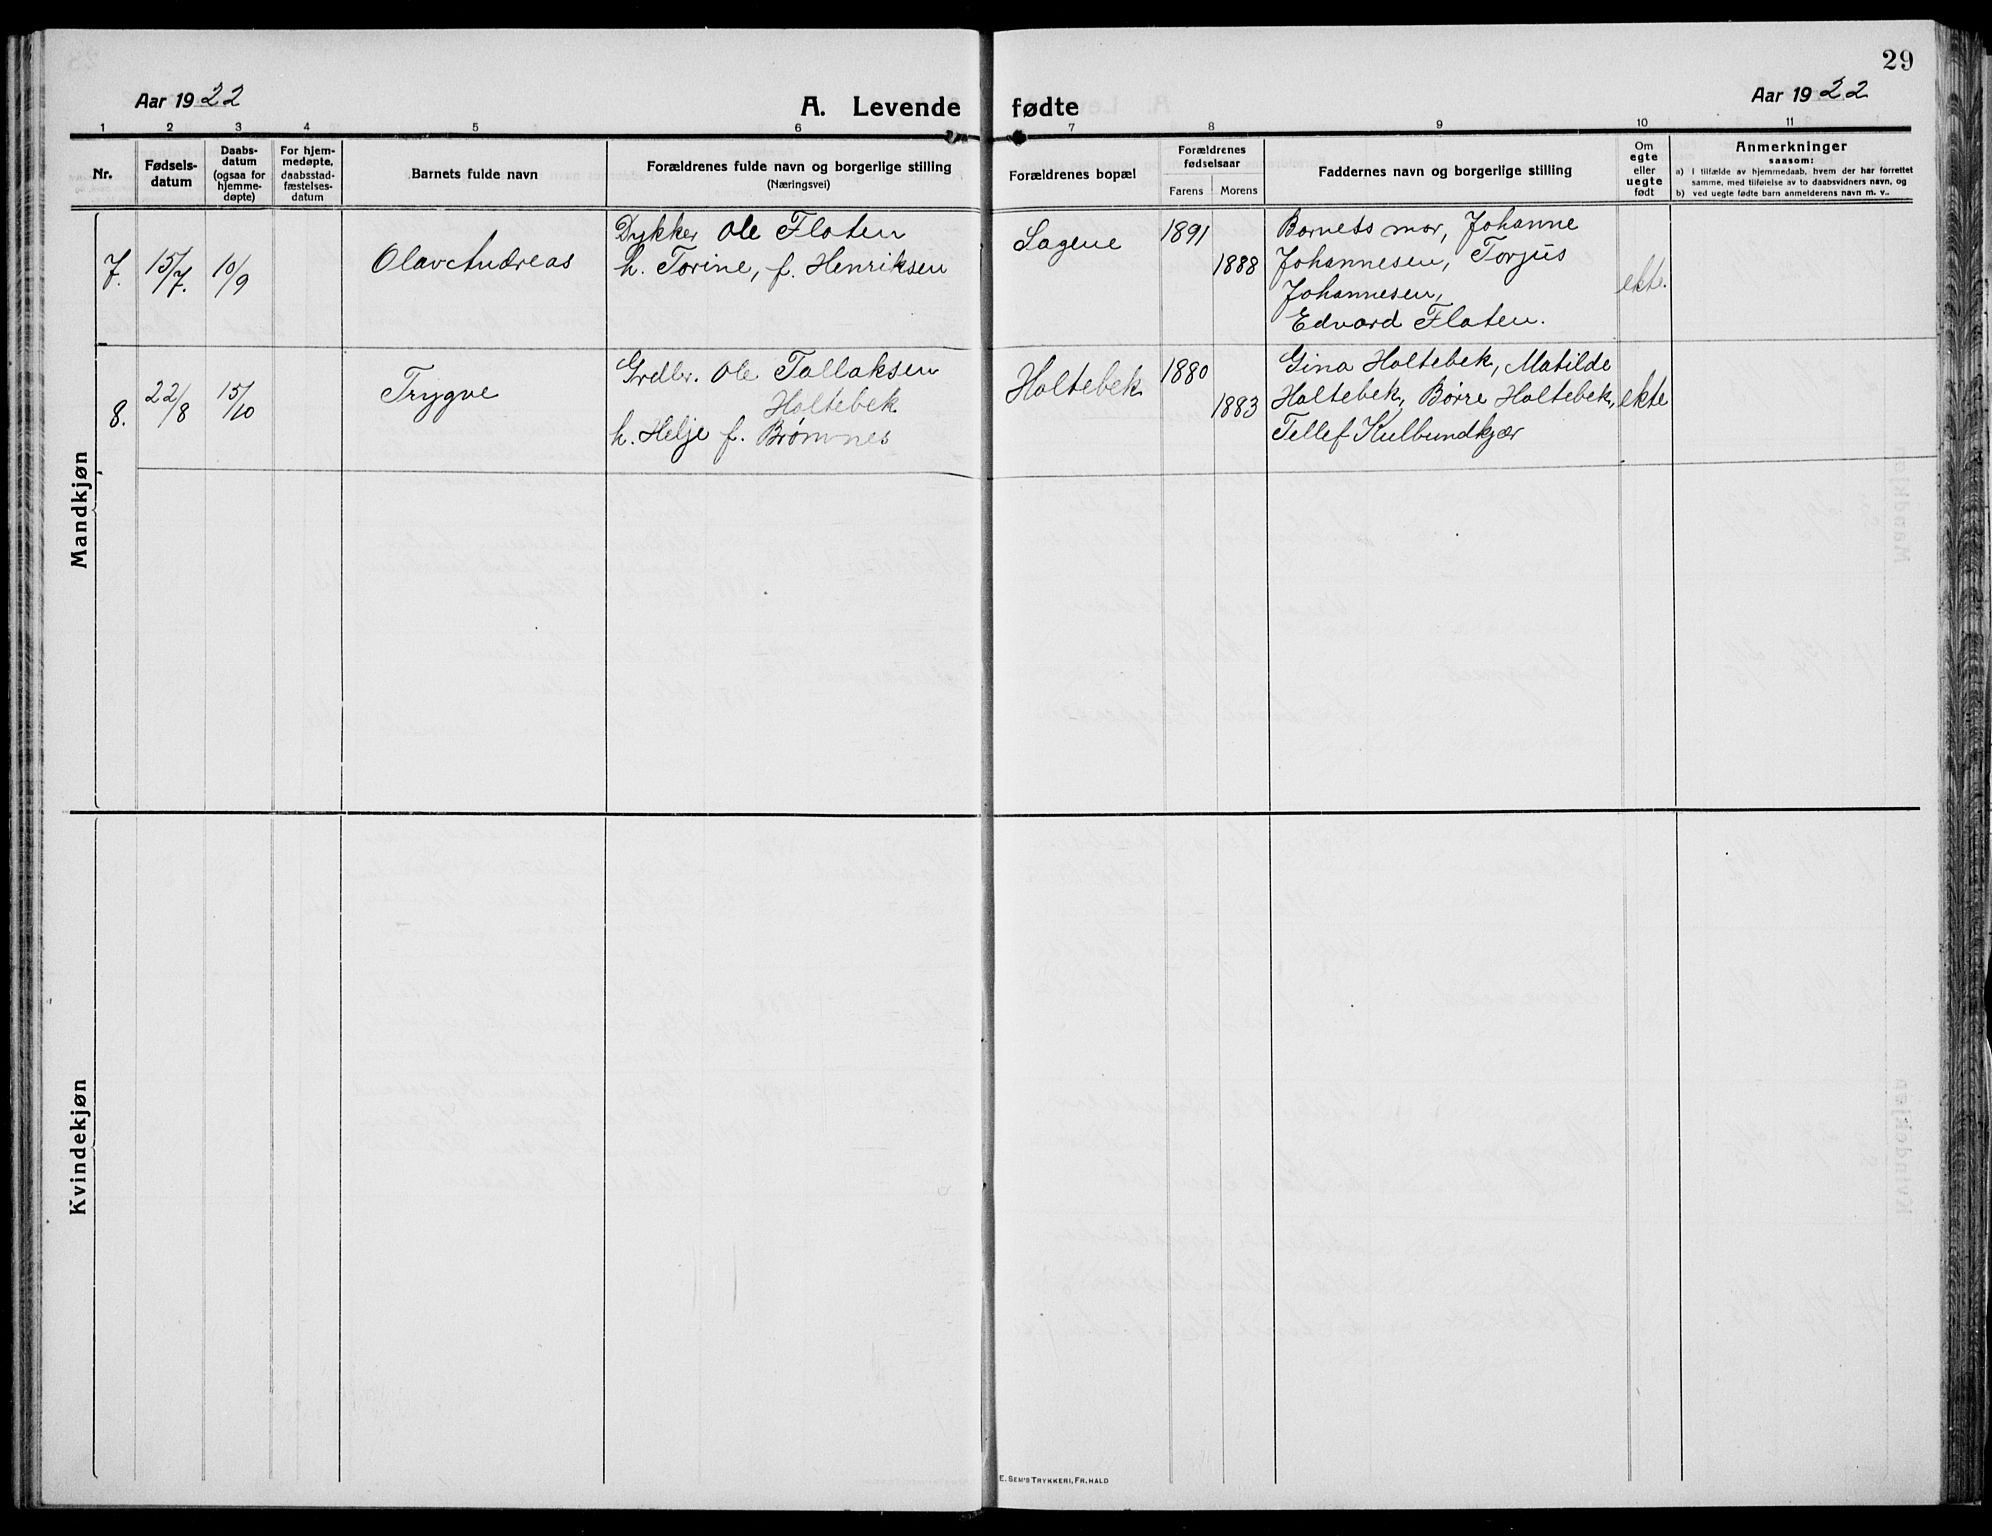 29
Aar 1922
A. Levende fødte
Aar 1922
1 2 3 4 5 6 7 8 9 10 11
Nr.
Fødsels-
datum
Daabs-
datum
(ogsaa for
hjemme-
døpte)
For hjem-
medøpte,
daabsstad-
fæstelses-
datum
Barnets fulde navn
Forældrenes fulde navn og borgerlige stilling
(Næringsvei)
Forældrenes bopæl
Forældrenes
fødselsaar
Farens Morens
Faddernes navn og borgerlige stilling
Om
egte
eller
uegte
født
Anmerkninger
saasom:
a) I tilfælde av hjemmedaab, hvem der har forrettet
samme, med tilføielse av to daabsvidners navn, og
b) ved uegte fødte barn anmelderens navn m. v..
Mandkjøn
7. 15/7. 10/9
Olav Andreas
Dykker Ole Floten
h. Torine, f. Henriksen
Lagene
1891
1888
Barnets mor, Johanne
Johannesen, Torjus
Johannesen,
Edvard Floten.
ekte.
8. 22/8 15/10
Trygve
Grdbr. Ole Tallaksen
Holtebek
h. Helje f. Brømnes
Holtebek
1880
1883
Gina Holtebek, Matilde
Holtebek, Børre Holtebek,
Tellef Kulbundkjær
ekte
Kvindekjøn
E. SEM'S TRYKKERI, FR.HALD